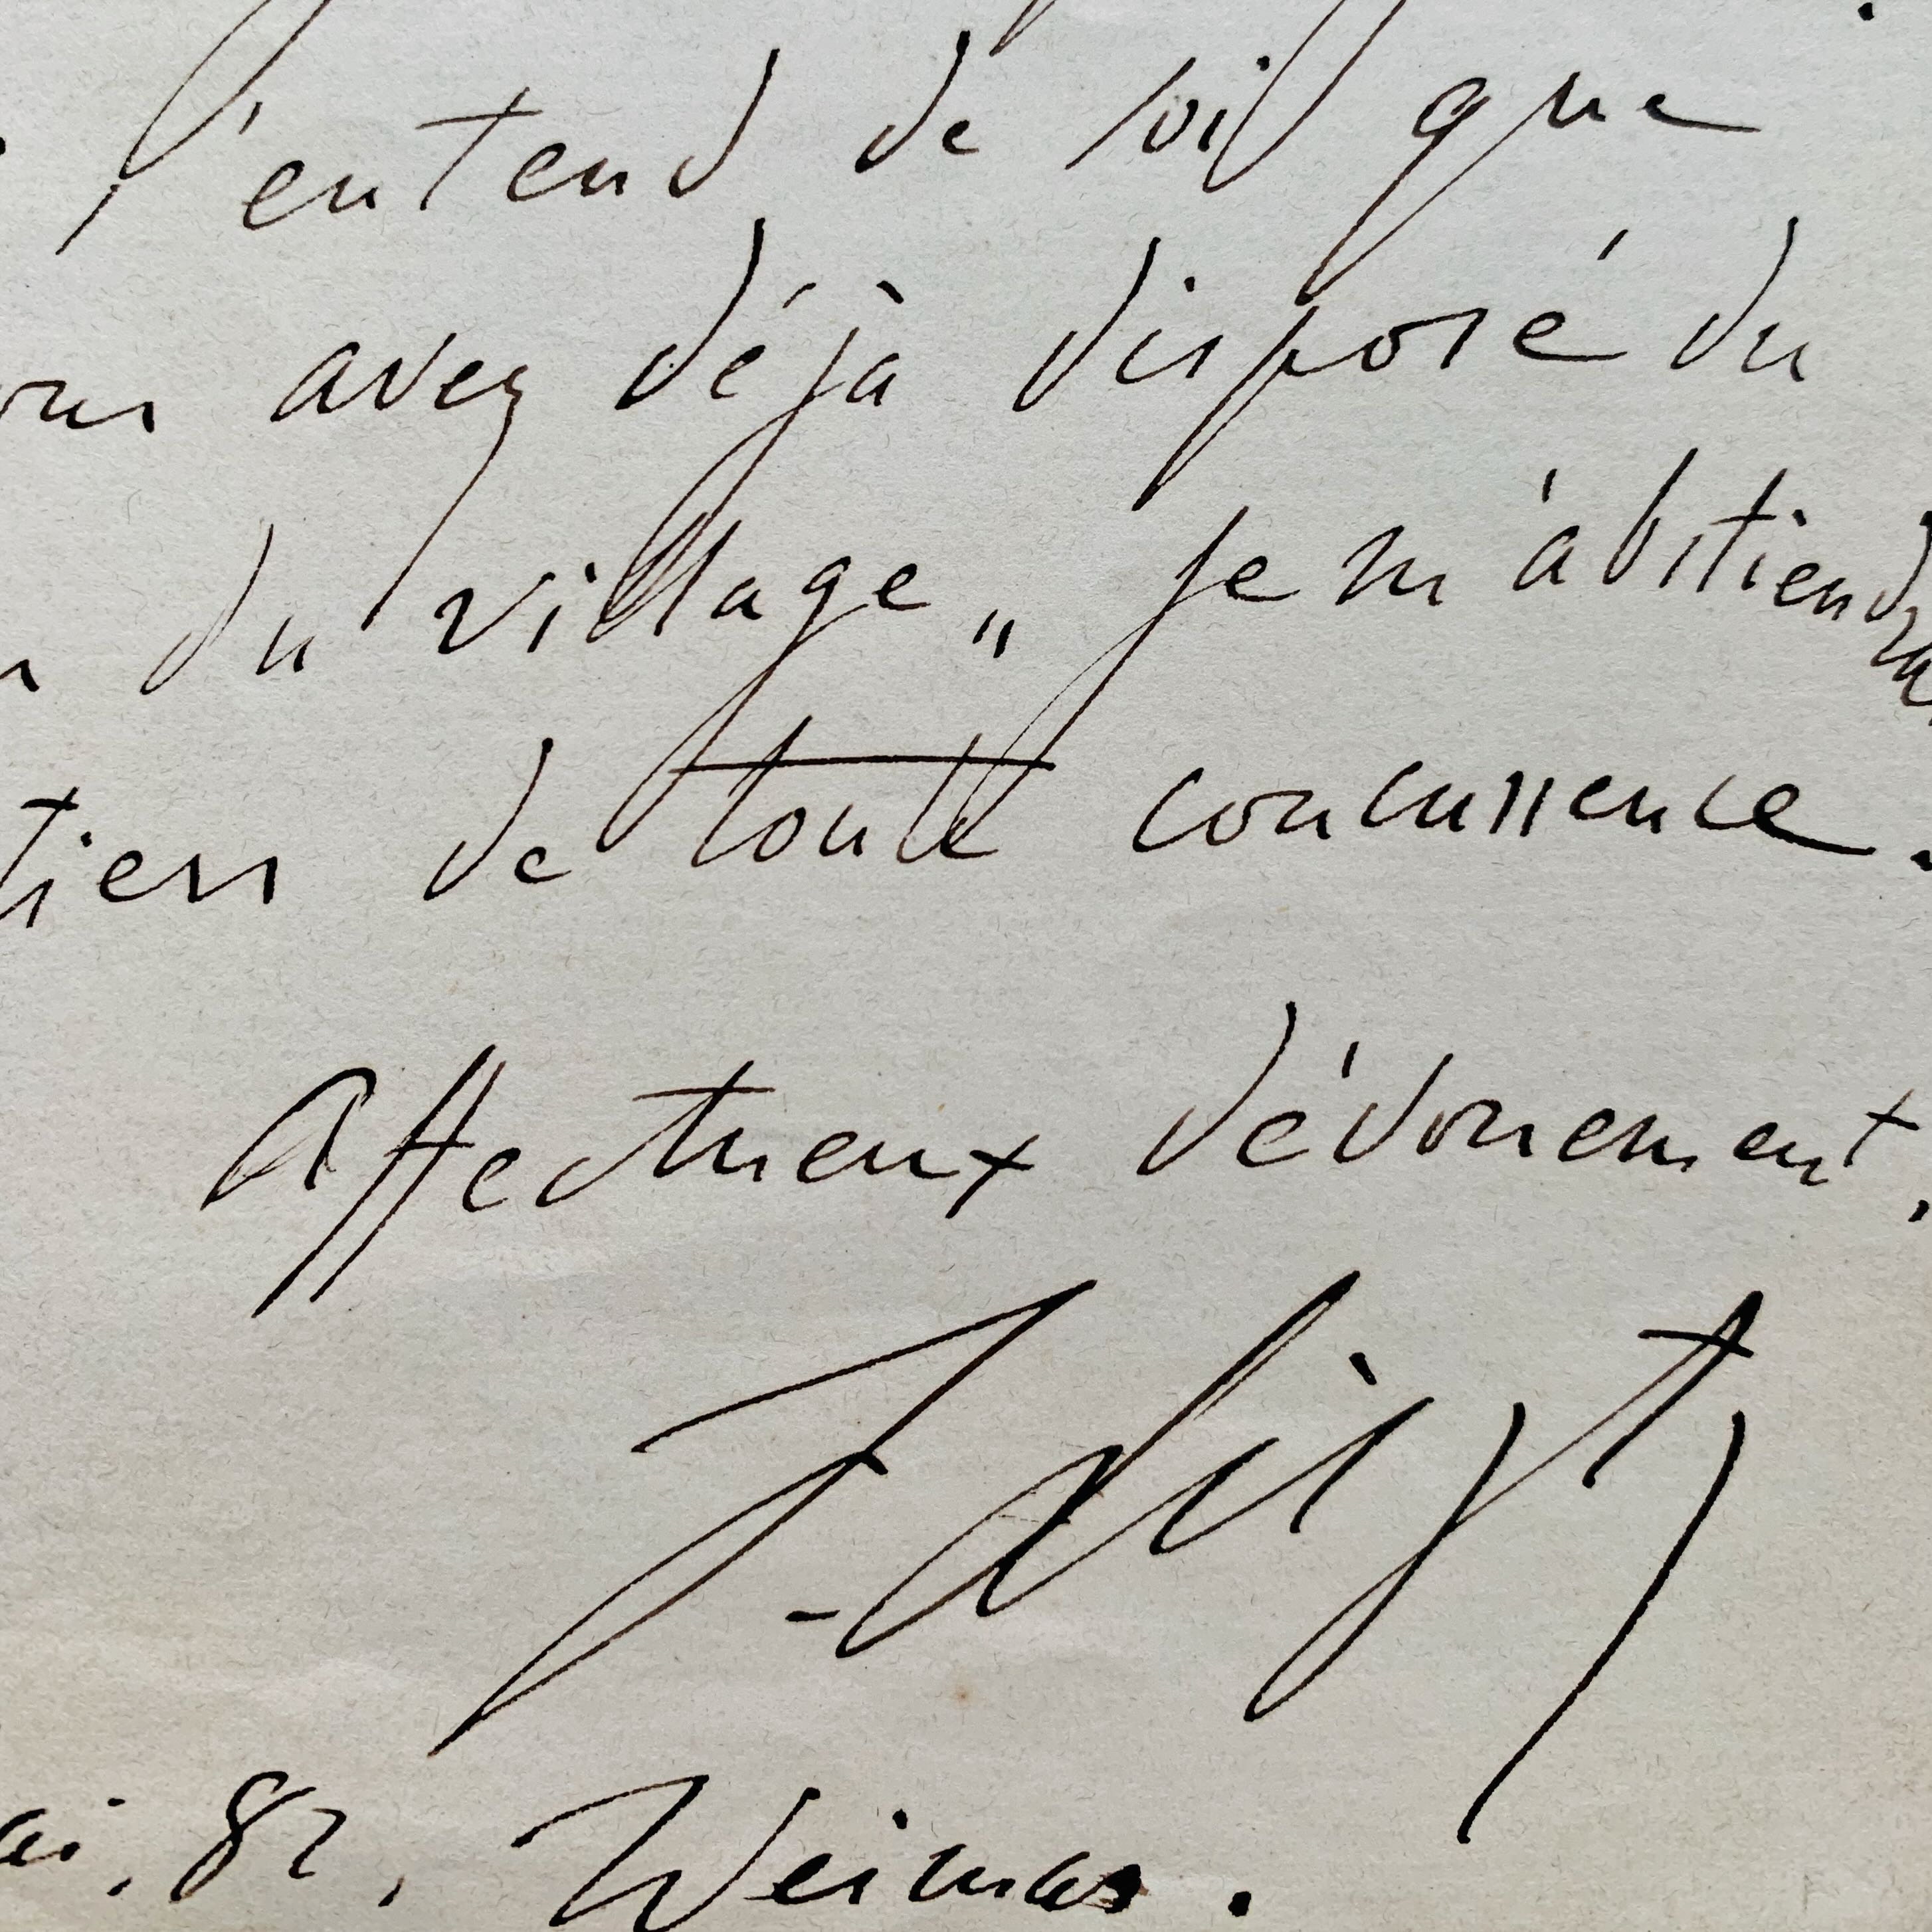 s'entend de soi que
avez déjà disposé du
du village „ je m'abstiendrai
de toute concurrence.
Affectueux dévouement,
F. Liszt
82, Weimar.